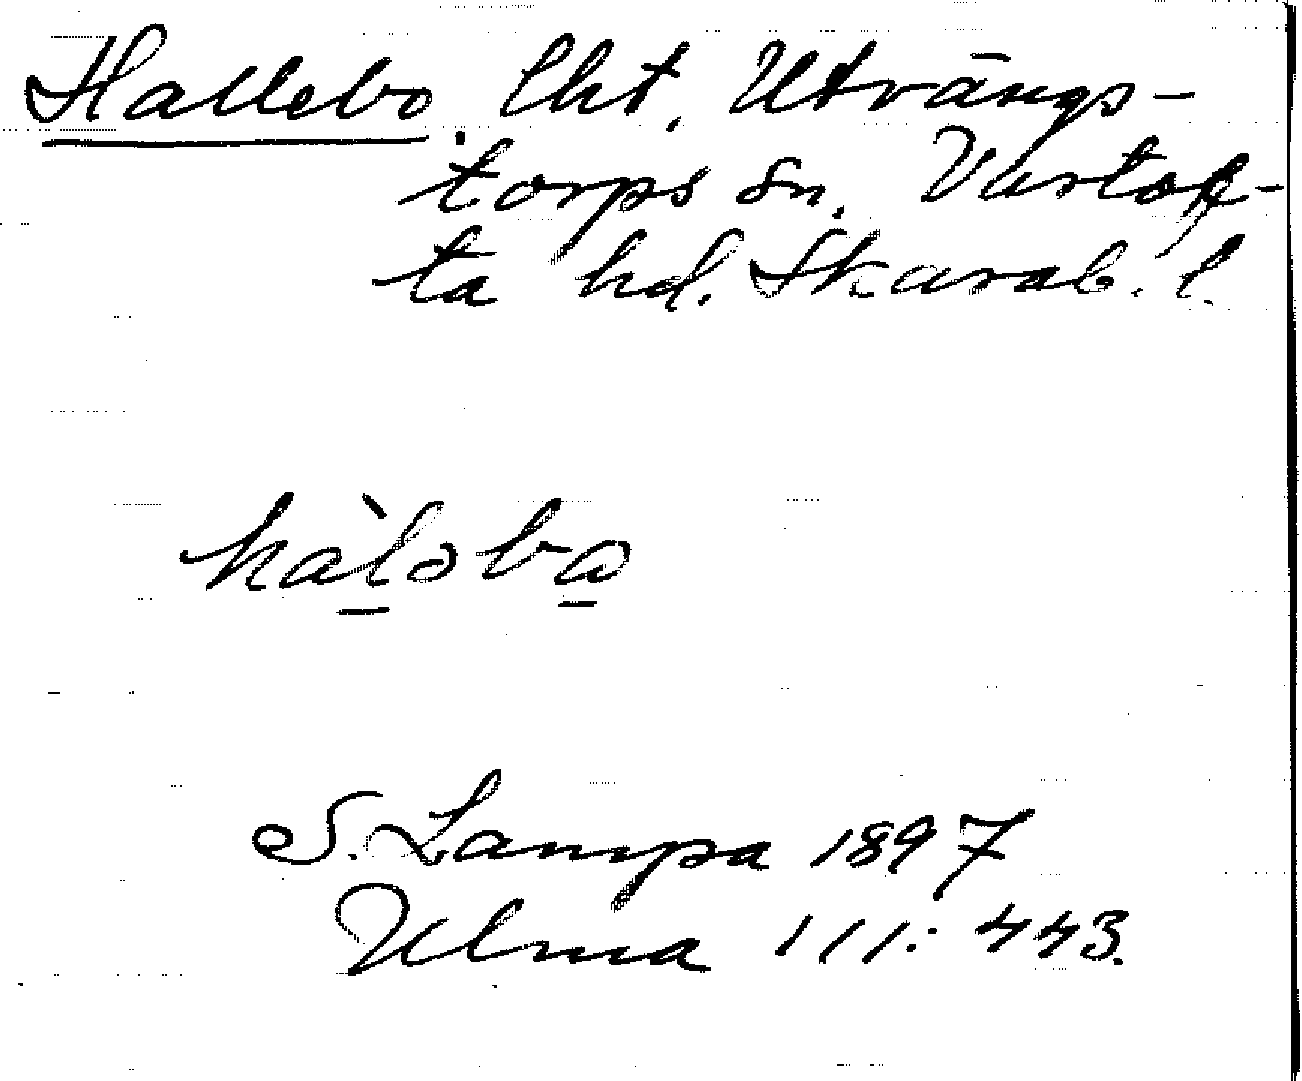 Hallebo. lht, Utvängs-
torps sn. Vartof-
ta hd. Skarab. l.
hàləba
S. Lampa 1897
Ulma 111: 443.